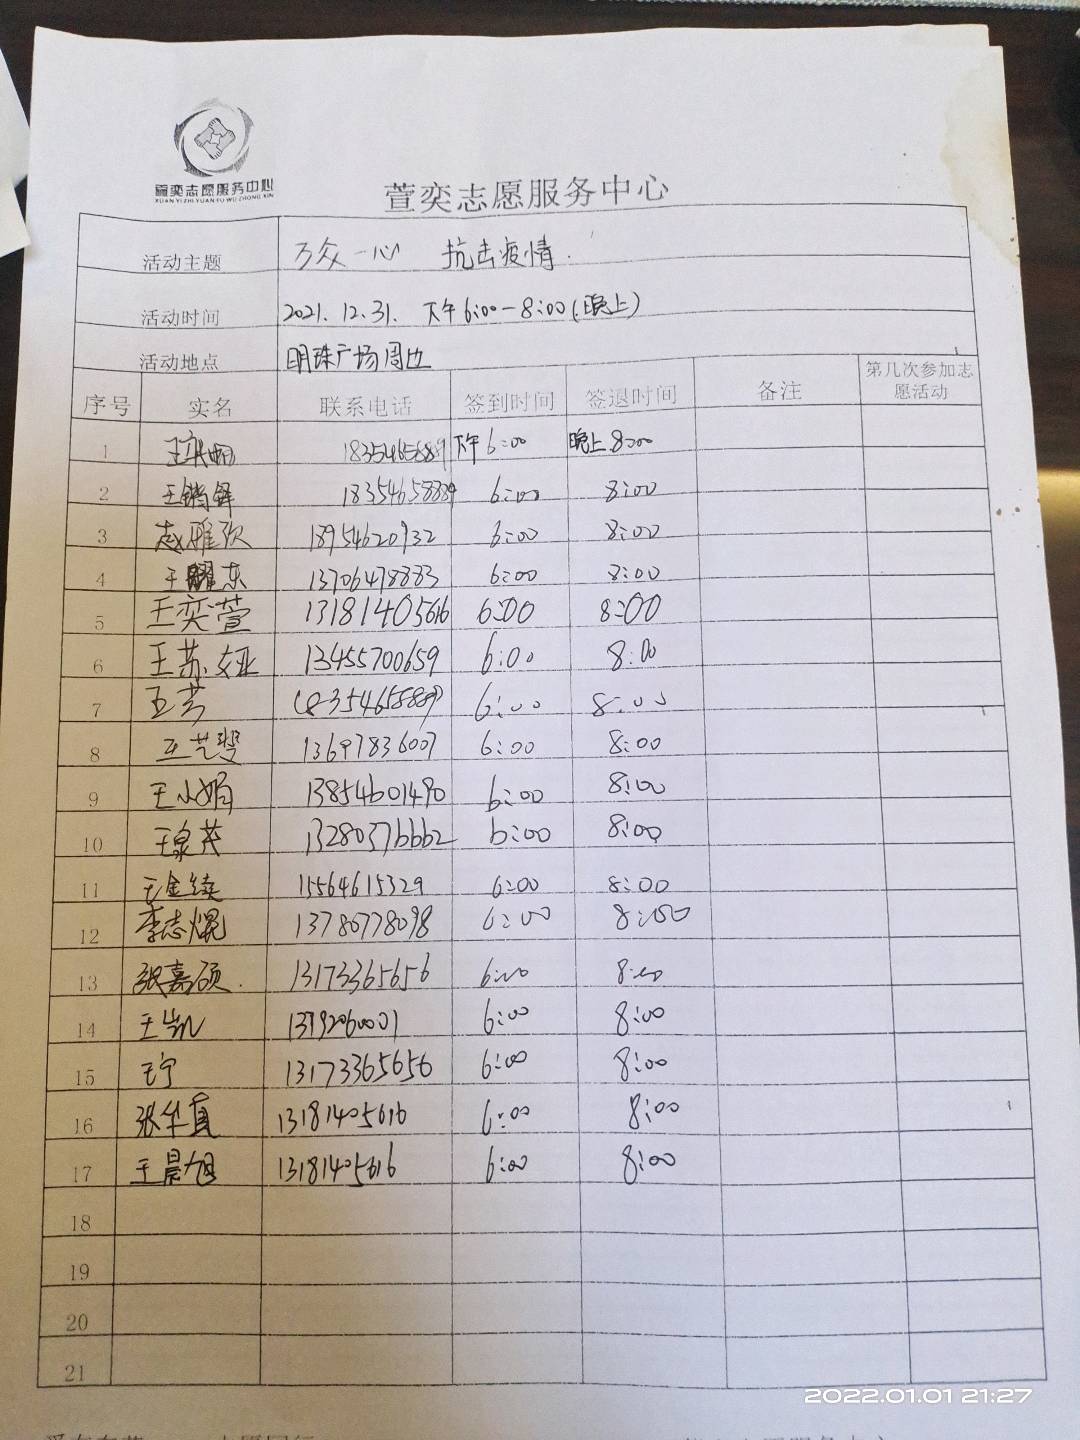 萱奕志愿服务中心
XUAN YI ZHI YUAN FU WU ZHONG XIN
萱奕志愿服务中心
活动主题 万众一心 抗击疫情
活动时间 2021.12.31. 下午6:00-8:00(晚上)
活动地点 明珠广场周边
序号 实名 联系电话 签到时间 签退时间 备注 第几次参加志愿活动
1 下午6:00 晚上8:00
2 王锵铎 6:00 8:00
3 赵雅欣 18954620932 6:00 8:00
4 王耀东 13706478883 6:00 8:00
5 王奕萱 13181405616 6:00 8:00
6 王苏娅 13455700659 6:00 8:00
7 王芳 6:00 8:00
8 王艺斐 13697836007 6:00 8:00
9 王小娟 13854601490 6:00 8:00
10 王泉茂 13280376662 6:00 8:00
11 王金续 15564615329 6:00 8:00
12 李志焜 13780778098 6:00 8:00
13 张嘉硕. 13173365656 6:00 8:00
14 王凯 6:00 8:00
15 王宁 13173365656 6:00 8:00
16 张华真 13181405616 6:00 8:00
17 王晨旭 13181405616 6:00 8:00
18
19
20
21
2022.01.01 21:27